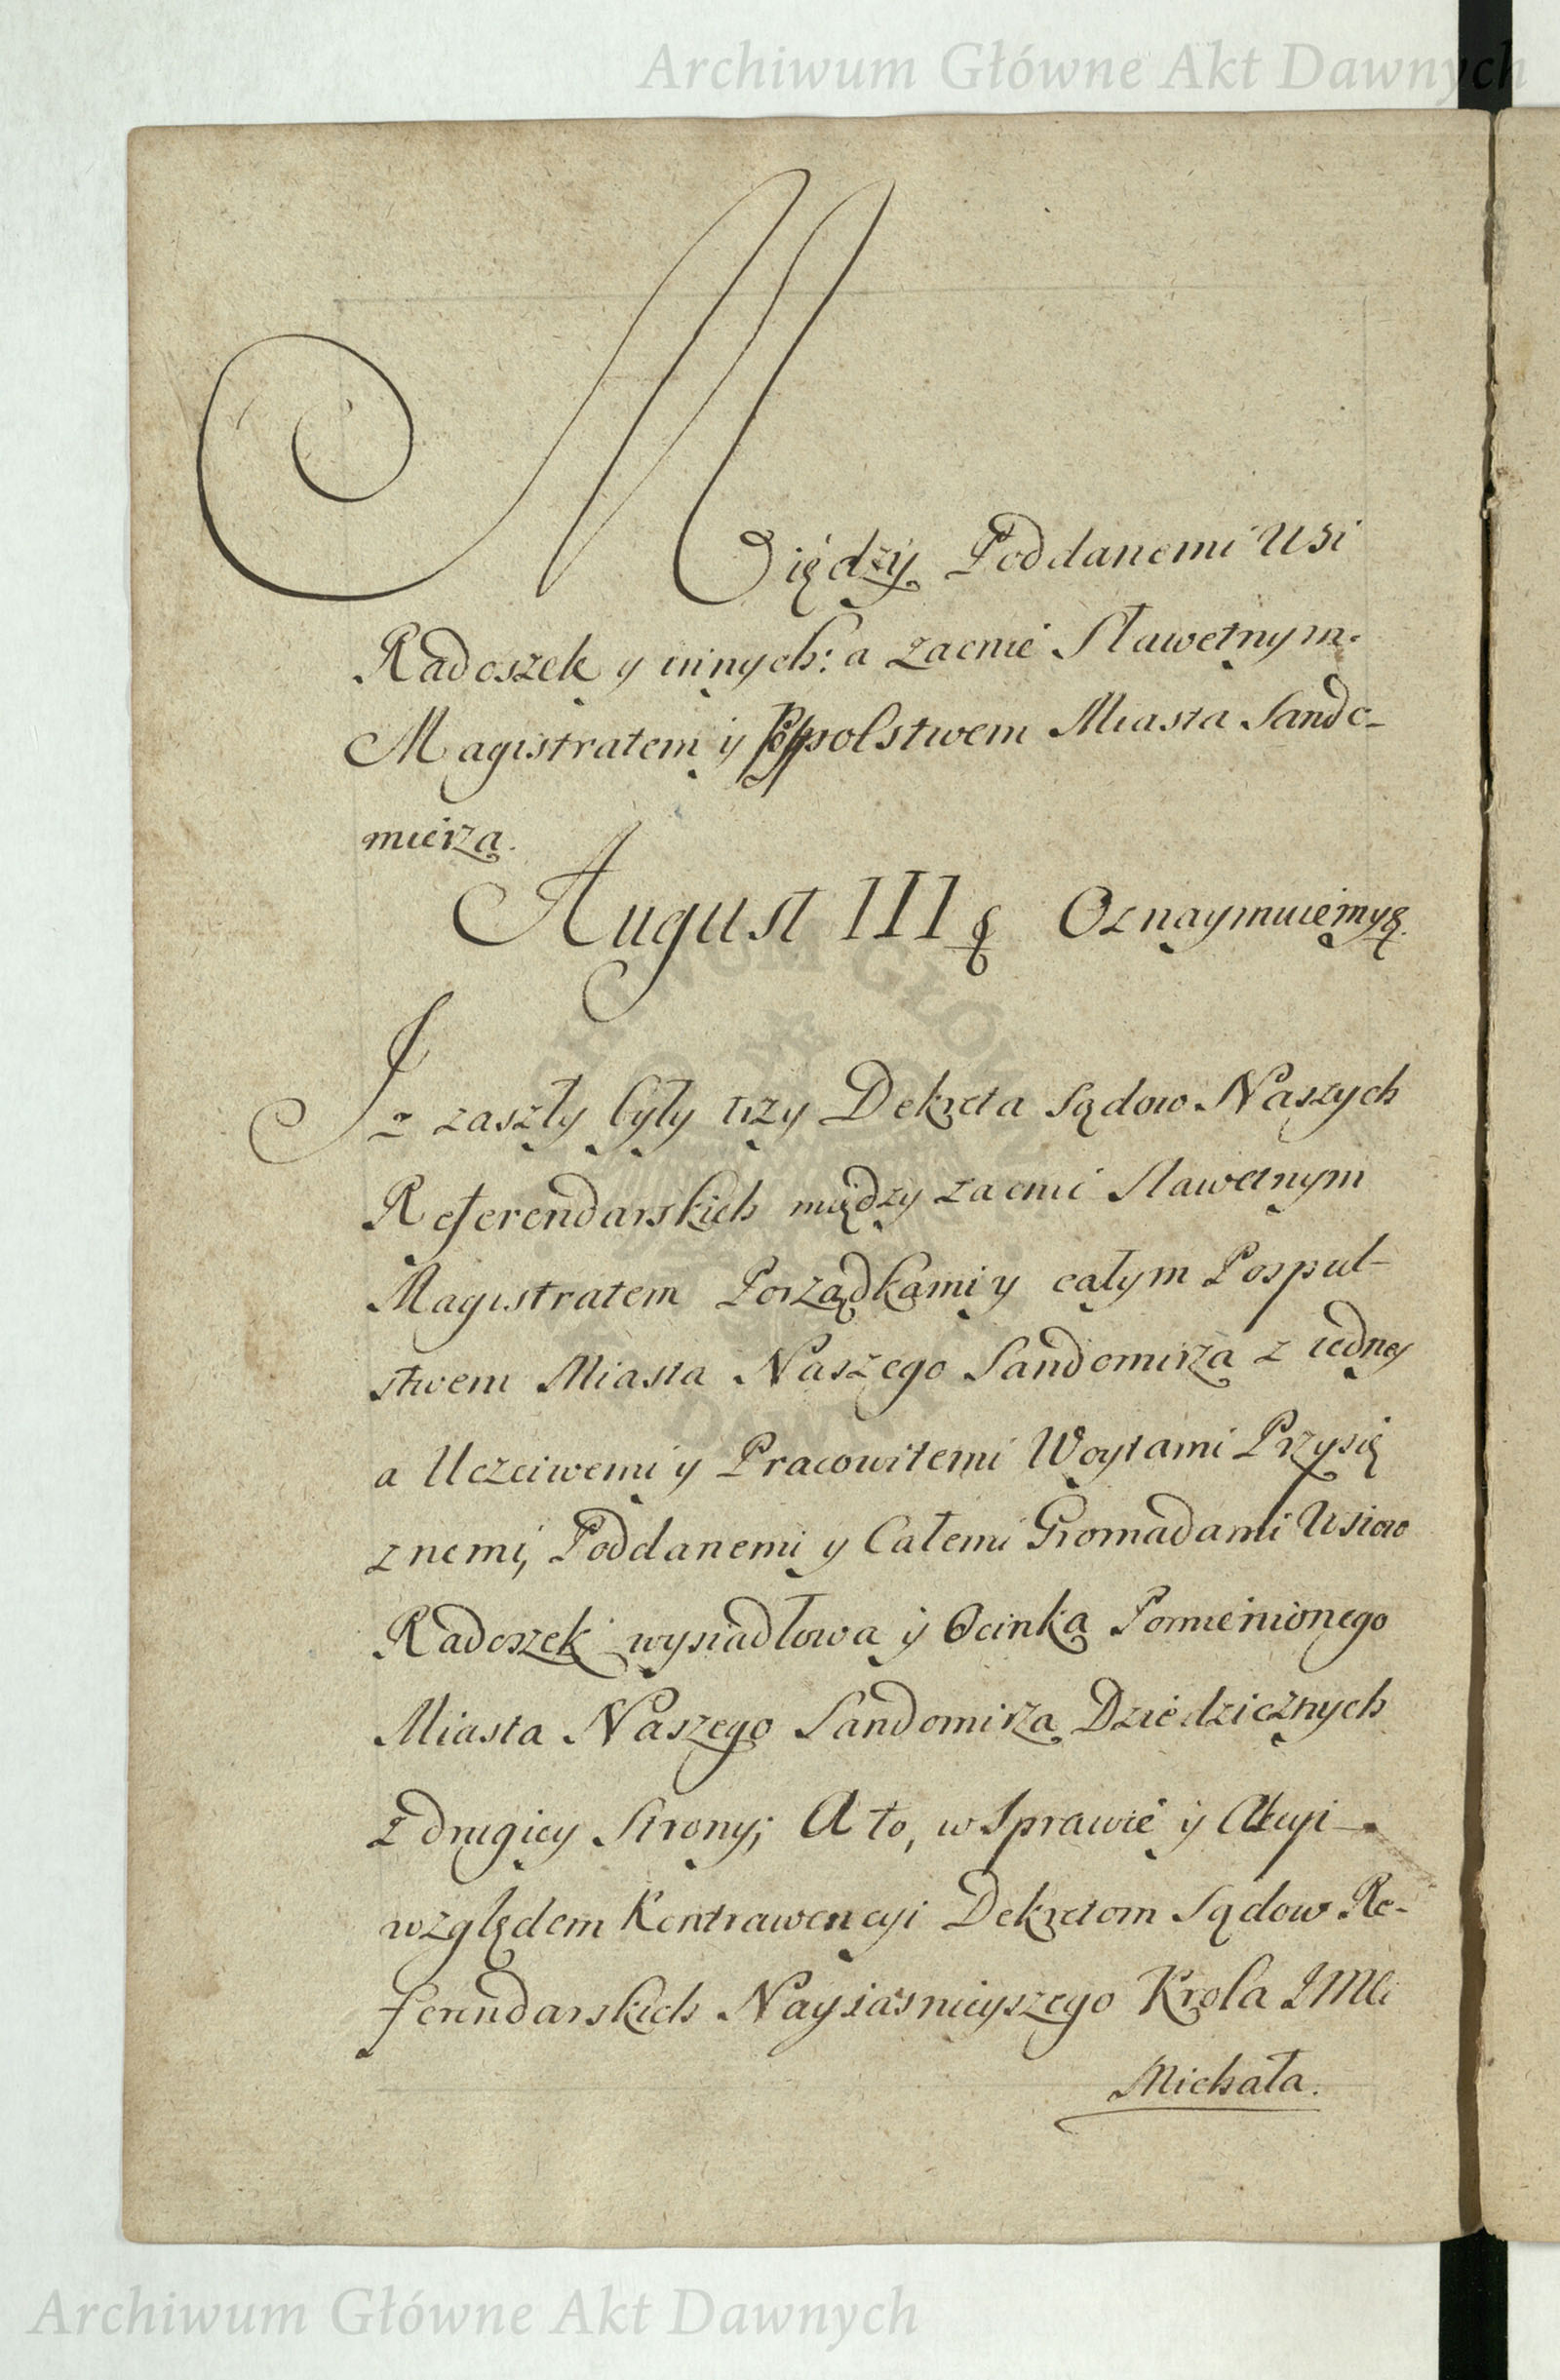 Archiwum Główne Akt Dawnych
Między Poddanemi Wsi
Radoszek y innych: a zacnie Sławetnym
Magistratem y Pospolstwem Miasta Sando-
mierza.
August III Oznaymuiemy
Iz zaszły były trzy Dekreta Sądow Naszych
Referendarskich między zacnie Sławetnym
Magistratem Porządkami y całym Pospul-
stwem Miasta Naszego Sandomirza z iedney
a Uczciwemi y Pracowitemi Woytami Przysię
znemi, Poddanemi y Całemi Gromadami Wsiow
Radoszek wysiadłowa y Ocinka Pomienionego
Miasta Naszego Sandomirza Dziedzicznych
z drugiey Strony; A to, w Sprawie y Akcyi
względem Kontrawencyi Dekretom Sądow Re-
ferendarskich Nayiasnieyszego Krola JMci
Michała.
Archiwum Główne Akt Dawnych